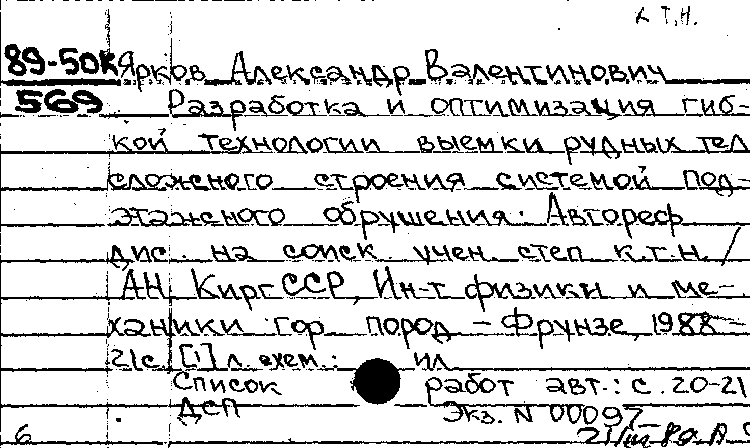 к.т.н.
89-50к Ярков Александр Валентинович
569 Разработка и оптимизация гиб-
кой технологии выемки рудных тел
сложного строения системой под-
этажного обрушения: Автореф
дис. на соиск. учен. степ к.т.н. /
АН КиргССР, Ин-т физики и ме-
ханики гор. пород - Фрунзе, 1988 -
21с. [1] л. схем.: ил
Список работ авт.: с. 20-21
ДСП Экз. N 00097
6